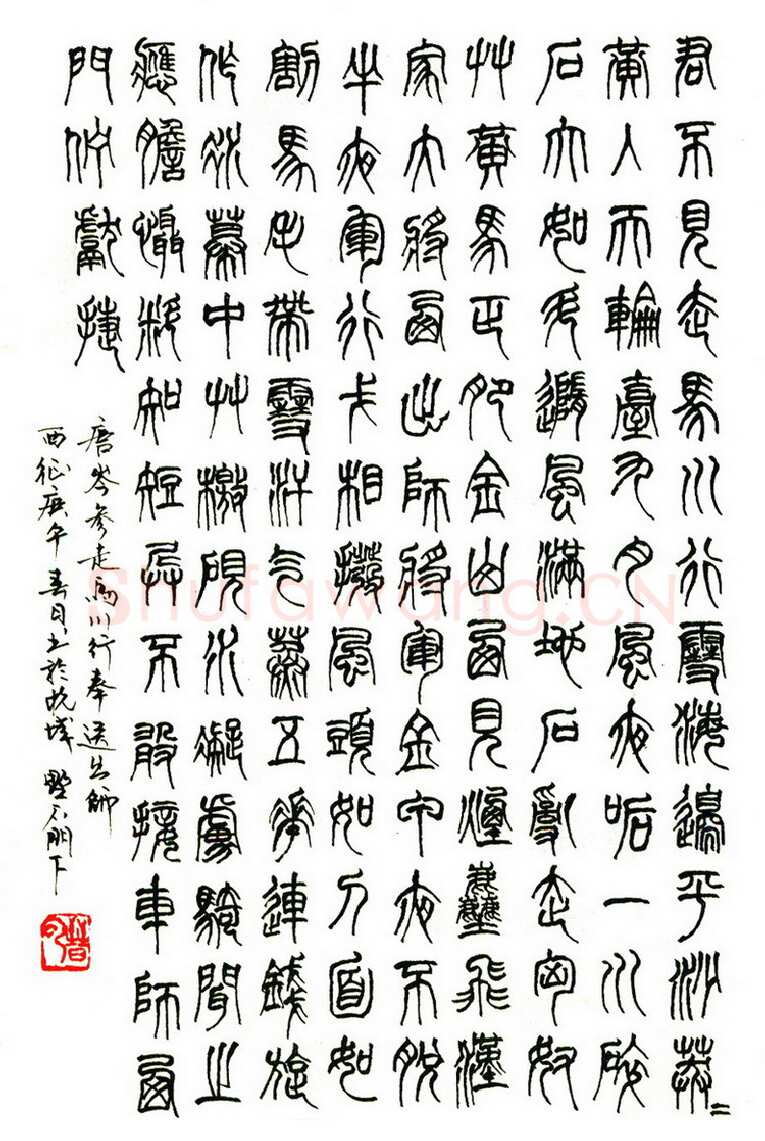 君不見走馬川行雪海邊平沙莽〻
黃入天輪臺九月風夜吼一川碎
石大如斗隨風滿地石亂走匈奴
草黃馬正肥金山西見煙塵飛漢
家大將西出師將軍金甲夜不脫
半夜軍行戈相撥風頭如刀面如
割馬毛帶雪汗气蒸五花連錢旋
作冰幕中草檄硯水凝虜騎聞之
應膽懾料知短兵不敢接車師西
門佇獻捷
唐岑參走馬川行奉送出師
西征庚午春日書於杭城
Shufawang.CN